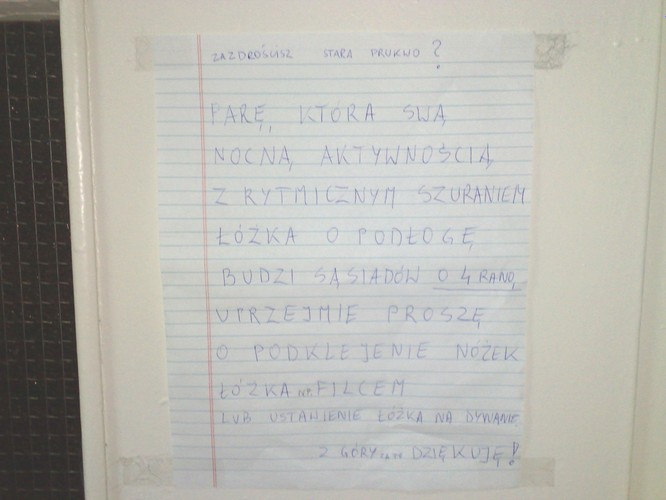 ZAZDROŚCISZ STARA PRUKWO?
PARĘ, KTÓRA SWĄ
NOCNĄ AKTYWNOŚCIĄ
Z RYTMICZNYM SZURANIEM
ŁÓŻKA O PODŁOGĘ
BUDZI SĄSIADÓW O 4 RANO,
UPRZEJMIE PROSZĘ
O PODKLEJENIE NÓŻEK
ŁÓŻKA FILCEM
LUB USTAWIENIE ŁÓŻKA NA DYWANIE
Z GÓRY DZIĘKUJĘ!